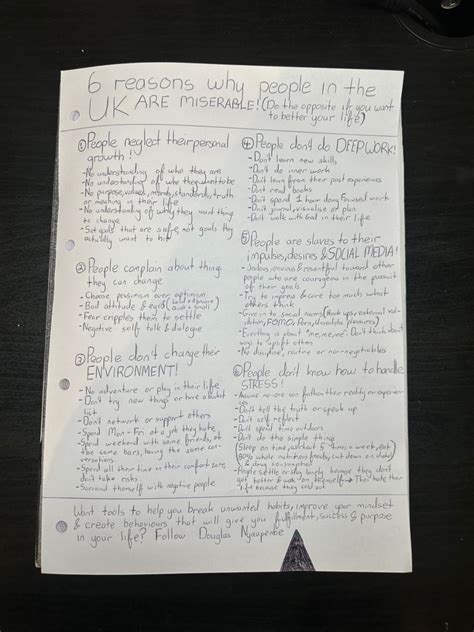 6 reasons why people in the
UK ARE MISERABLE! (Do the opposite if you want
to better your life)
① People neglect their personal
growth!
- No understanding of who they are
- No understanding of who they want to be
- No purpose, values, morals, standards, truth
or meaning in their life
- No understanding of why they want things
to change
- Set goals that are safe, not goals they
actually want to hit
② People complain about thing
they can change
- Choose pessimism over optimism
- Bad attitude & ego
- Fear cripples them to settle
- Negative self talk & dialogue
③ People don't change their
ENVIRONMENT!
- No adventure or play in their life
- Don't try new things or have a bucket
list
- Don't network or support others
- Spend Mon-Fri at a job they hate
- Spend weekend with same friends, at
the same bars, having the same con-
versations.
- Spend all their time in their comfort zone,
don't take risks.
- Surround themself with negative people
④ People don't do DEEP WORK!
- Don't learn new skills
- Don't do inner work
- Don't learn from their past experiences
- Don't read books
- Don't spend 1 hour doing focused work
- Don't journal, visualise or plan
- Don't walk with God in their life
⑤ People are slaves to their
impulses, desires & SOCIAL MEDIA!
- Jealous, envious & resentful toward other
people who are courageous in the pursuit
of their goals
- Try to impress & care too much what
others think
- Give in to social norms (Hook ups, external vali-
dation, FOMO, Porn, pleasures)
- Everything is about "me, me, me". Don't think about
ways to uplift others
- No discipline, routine or non-negotiables
⑥ People don't know how to handle
STRESS!
- Assume no-one can fathom their reality or experien-
ces
- Don't tell the truth or speak up
- Don't self reflect
- Don't spend time outdoors
- Don't do the simple things
(Sleep on time, workout times a week, eat
80% whole nutritious foods, cut down on
& drug consumption)
- People settle or stay lonely because they don't
get better & work on themself → They hate their
life because they sold out
Want tools to help you break unwanted habits, improve your mindset
& create behaviours that will give you fulfillment, success & purpose
in your life? Follow Douglas